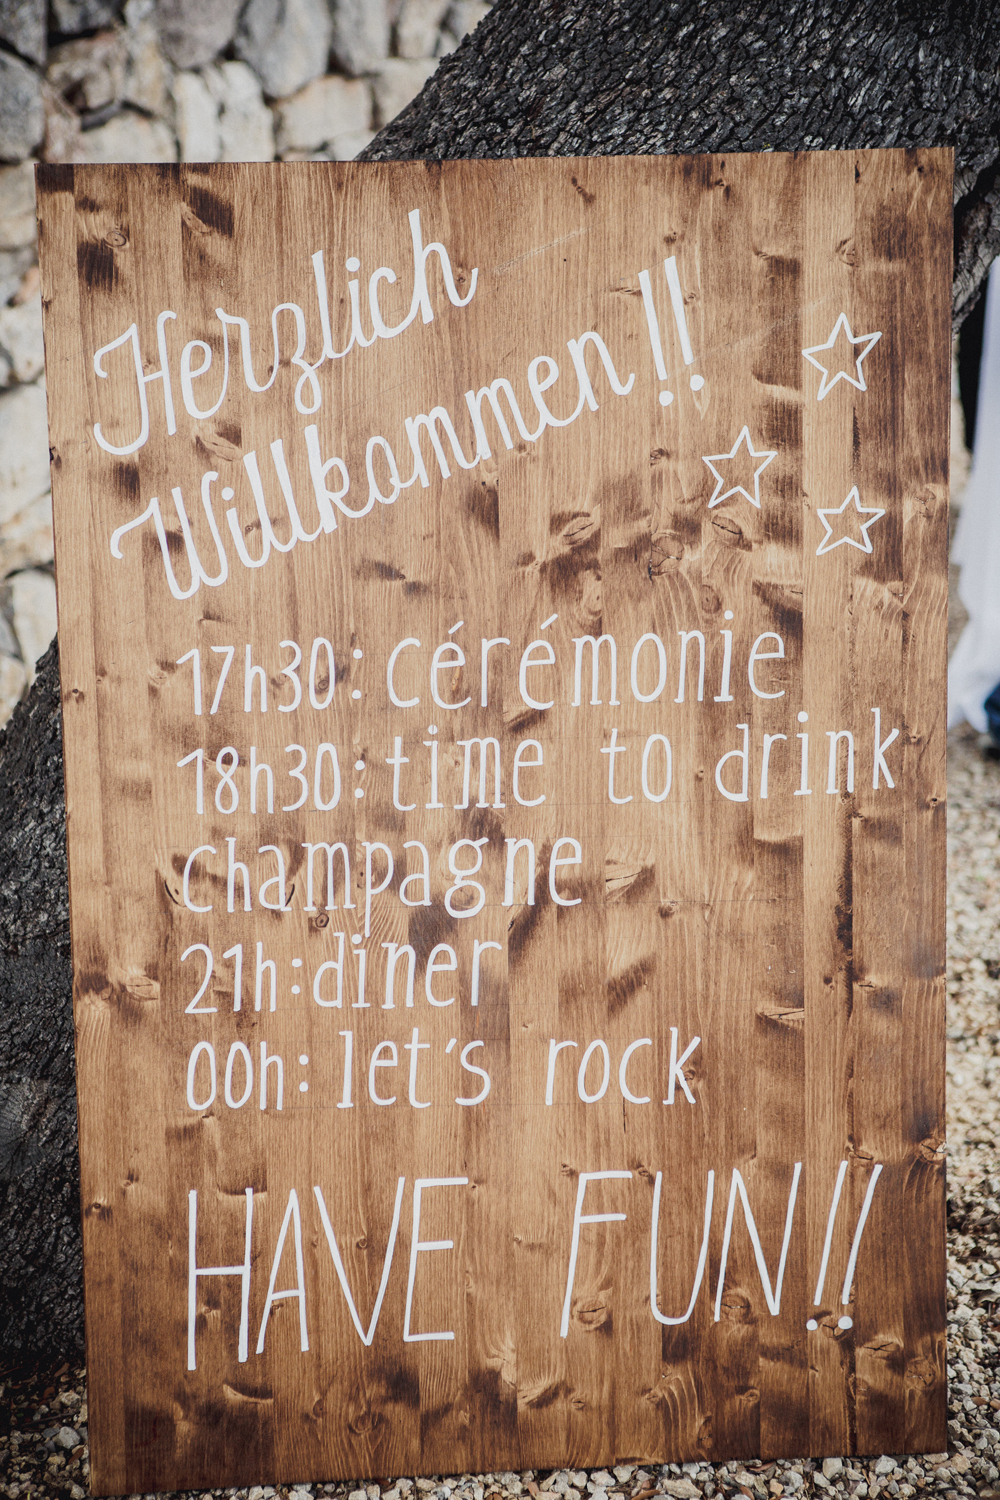 Herzlich
Willkommen!!
17h30: cérémonie
18h30: time to drink
champagne
21h: diner
00h: let's rock
HAVE FUN!!